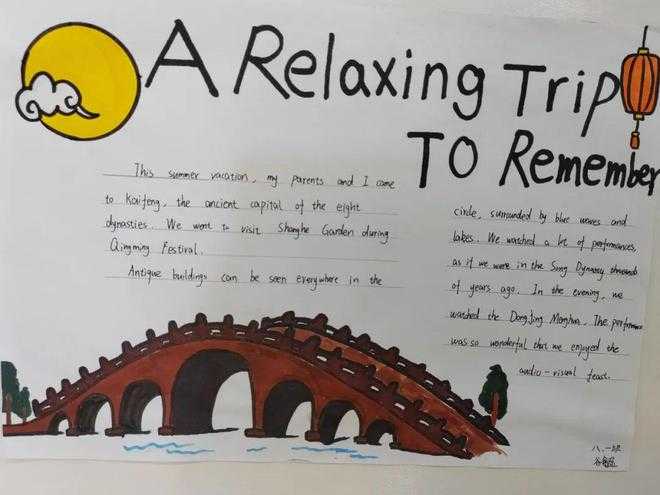 A Relaxing Trip
TO Remember
This summer vacation, my parents and I came
to Kaifeng, the ancient capital of the eight
dynasties. We went to visit Shanghe Garden during
Qingming Festival.
Antique buildings can be seen everywhere in the
circle, surrounded by blue waves and
lakes. We watched a lot of performances,
as if we were in the Song Dynasty thousands
of years ago. In the evening, we
watched the DongJing Menghua. The performance
was so wonderful that we enjoyed the
audio-visual feast.
八.一班